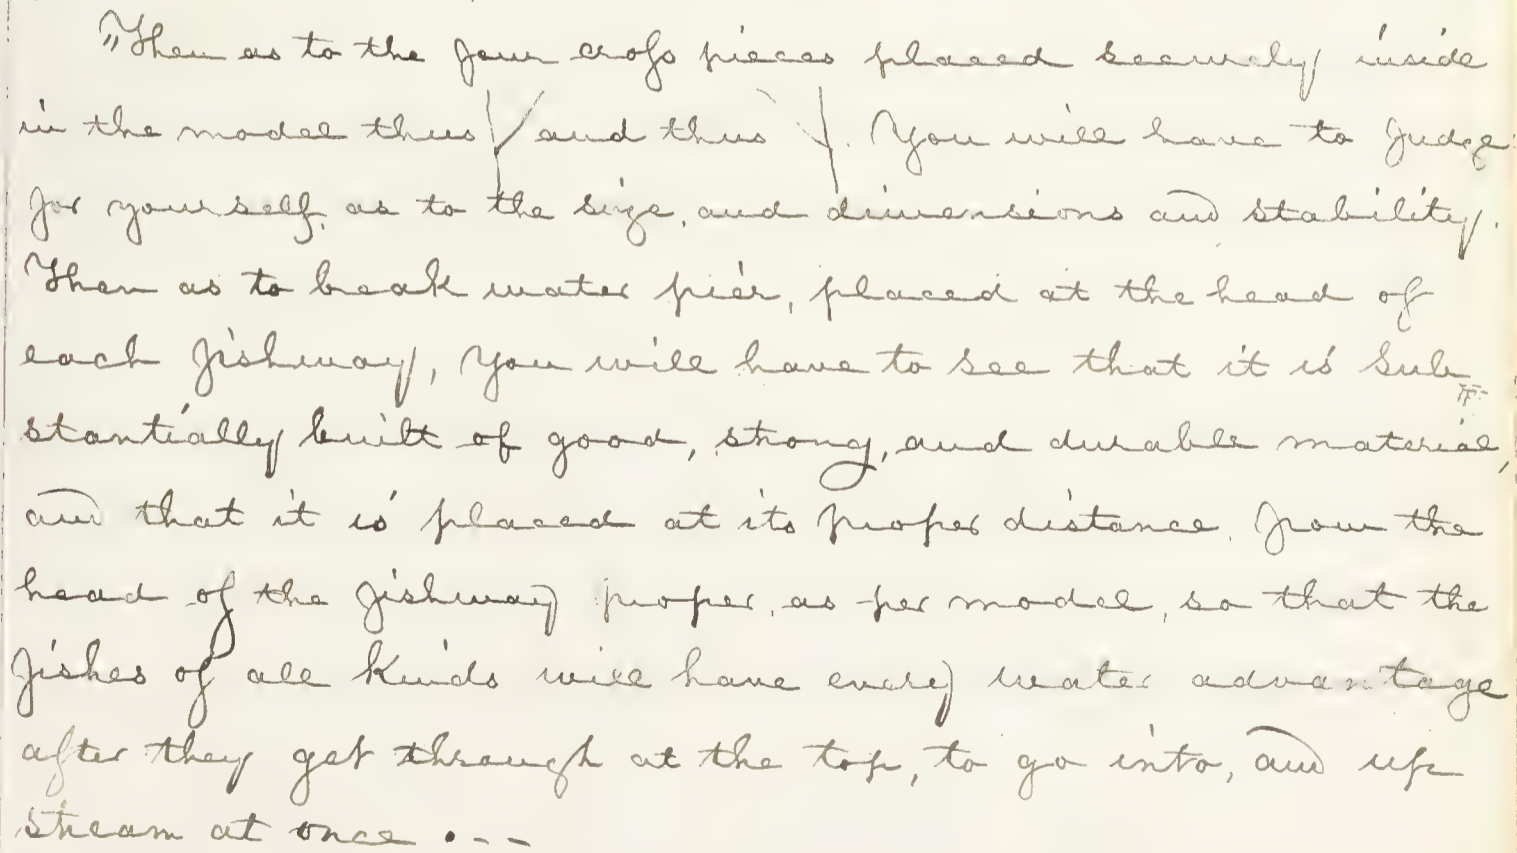 "Then as to the four cross pieces placed securely inside
in the model thus and thus . You will have to judge
for yourself, as to the size, and dimensions and stability.
Then as to break water pier, placed at the head of
each fishway, you will have to see that it is sub
stantially built of good, strong, and durable material,
and that it is placed at its proper distance from the
head of the fishway proper, as per model, so that the
fishes of all kinds will have every water advantage
after they get through at the top, to go into, and up
stream at once . - -